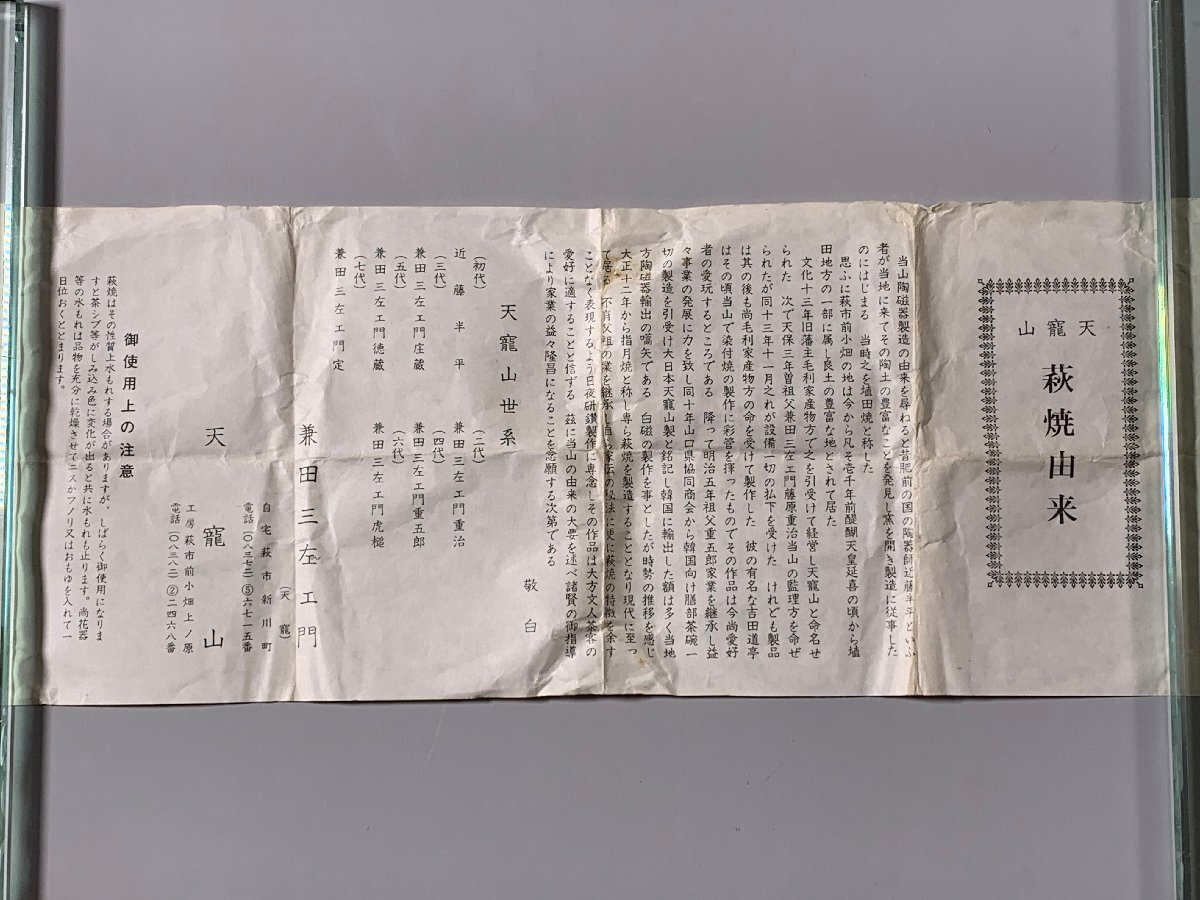 天寵山
萩焼由来
当山陶磁器製造の由来を尋ねると昔肥前の国の陶器師近藤半平といふ
者が当地に来てその陶土の豊富なことを発見し窯を開き製造に従事した
のにはじまる　当時之を埴田焼と称した
思ふに萩市前小畑の地は今から凡そ壱千年前醍醐天皇延喜の頃から埴
田地方の一部に属し良土の豊富な地とされて居た
文化十三年旧藩主毛利家産物方で之を引受けて経営し天寵山と命名せ
られた　次で天保三年曽祖父兼田三左エ門藤原重治当山の監理方を命ぜ
られたが同十三年十一月之れが設備一切の払下を受けた　けれども製品
は其の後も尚毛利家産物方の命を受けて製作した　彼の有名な吉田道亭
はその頃当山で染付焼の製作に彩管を揮ったものでその作品は今尚愛好
者の愛玩するところである　降って明治五年祖父重五郎家業を継承し益
々事業の発展に力を致し同十年山口県協同商会から韓国向け膳部茶碗一
切の製造を引受け大日本天寵山製と銘記し韓国に輸出した額は多く当地
方陶磁器輸出の嚆矢である　白磁の製作を事としたが時勢の推移を感じ
大正十二年から指月焼と称し専ら萩焼を製造することとなり現代に至っ
て居る　不肖父祖の業を継承し自ら家伝の秘法に更に萩焼の特徴を余す
ことなく表現するよう日夜研鑽製作に専念しその作品は大方文人茶客の
愛好に適することと信ずる　茲に当山の由来の大要を述べ諸賢の御指導
により家業の益々隆昌になることを念願する次第である
敬白
天寵山世系
（初代）　（二代）
近藤半平　兼田三左エ門重治
（三代）　（四代）
兼田三左エ門庄蔵　兼田三左エ門重五郎
（五代）　（六代）
兼田三左エ門徳蔵　兼田三左エ門虎槌
（七代）
兼田三左エ門定
兼田三左エ門
（天寵）
自宅萩市新川町
電話（〇八三七二）⑤六七一五番
天寵山
工房萩市前小畑上ノ原
電話（〇八三八二）②二四六八番
御使用上の注意
萩焼はその性質上水もれする場合がありますが、しばらく御使用になりま
すと茶シブ等がしみ込み色に変化が出ると共に水もれも止ります。尚花器
等の水もれは品物を充分に乾燥させてニスかフノリ又はおもゆを入れて一
日位おくととまります。